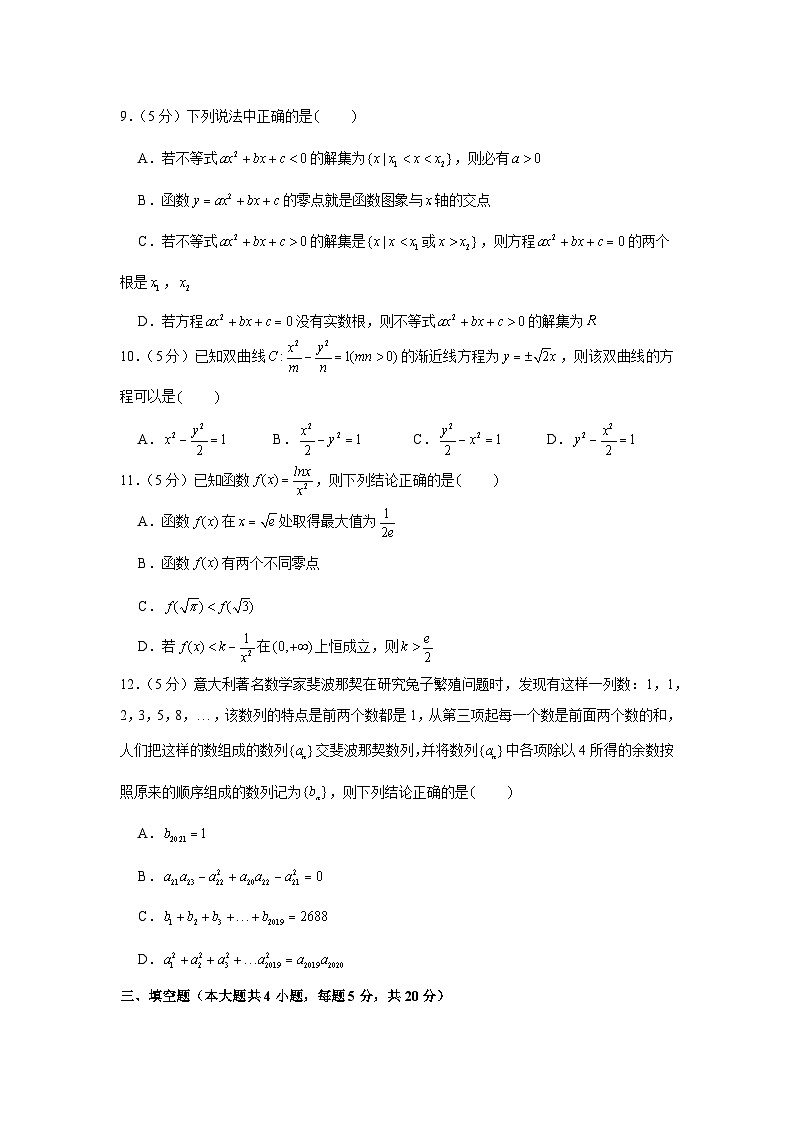 9.（5分）下列说法中正确的是(　　)
A．若不等式ax²+bx+c<0的解集为{x|x₁<x<x₂}，则必有a>0
B．函数y=ax²+bx+c的零点就是函数图象与x轴的交点
C．若不等式ax²+bx+c>0的解集是{x|x<x₁或x>x₂}，则方程ax²+bx+c=0的两个
根是x₁，x₂
D．若方程ax²+bx+c=0没有实数根，则不等式ax²+bx+c>0的解集为R
10.（5分）已知双曲线C:x²/m-y²/n=1(mn>0)的渐近线方程为y=±√2x，则该双曲线的方
程可以是(　　)
A．x²-y²/2=1 B．x²/2-y²=1 C．y²/2-x²=1 D．y²-x²/2=1
11.（5分）已知函数f(x)=lnx/x²，则下列结论正确的是(　　)
A．函数f(x)在x=√e处取得最大值为1/2e
B．函数f(x)有两个不同零点
C．f(√π)<f(√3)
D．若f(x)<k-1/x²在(0,+∞)上恒成立，则k>e/2
12.（5分）意大利著名数学家斐波那契在研究兔子繁殖问题时，发现有这样一列数：1，1，
2，3，5，8，…，该数列的特点是前两个数都是1，从第三项起每一个数是前面两个数的和，
人们把这样的数组成的数列{aₙ}交斐波那契数列，并将数列{aₙ}中各项除以4所得的余数按
照原来的顺序组成的数列记为{bₙ}，则下列结论正确的是(　　)
A．b₂₀₂₁=1
B．a₂₁a₂₃-a₂₂²+a₂₀a₂₂-a₂₁²=0
C．b₁+b₂+b₃+…+b₂₀₁₉=2688
D．a₁²+a₂²+a₃²+…a₂₀₁₉²=a₂₀₁₉a₂₀₂₀
三、填空题（本大题共4小题，每题5分，共20分）